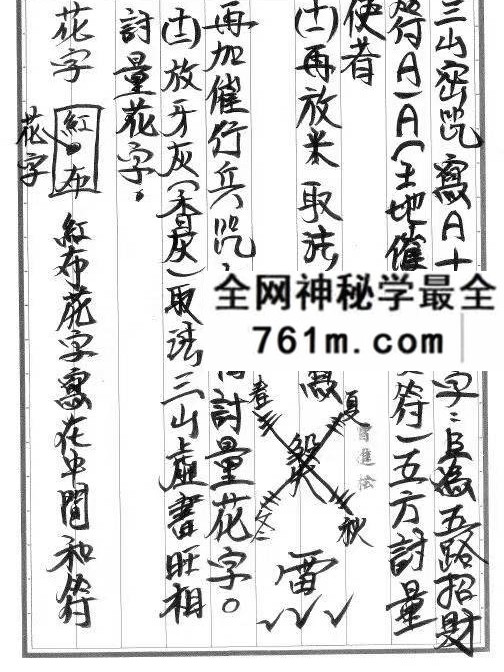 三山密咒寫A十字:B為五路招財
符A)A(土地催符)五方討量
使者
(十一)再放米取法
夏
春
秋
雷
再加催行兵咒討量花字。
(十二)放牙灰(香灰)取法三山虛書旺相
討量花字。
花字
紅布
花字
紅布花字寫在中間和符
全网神秘学最全
761m.com